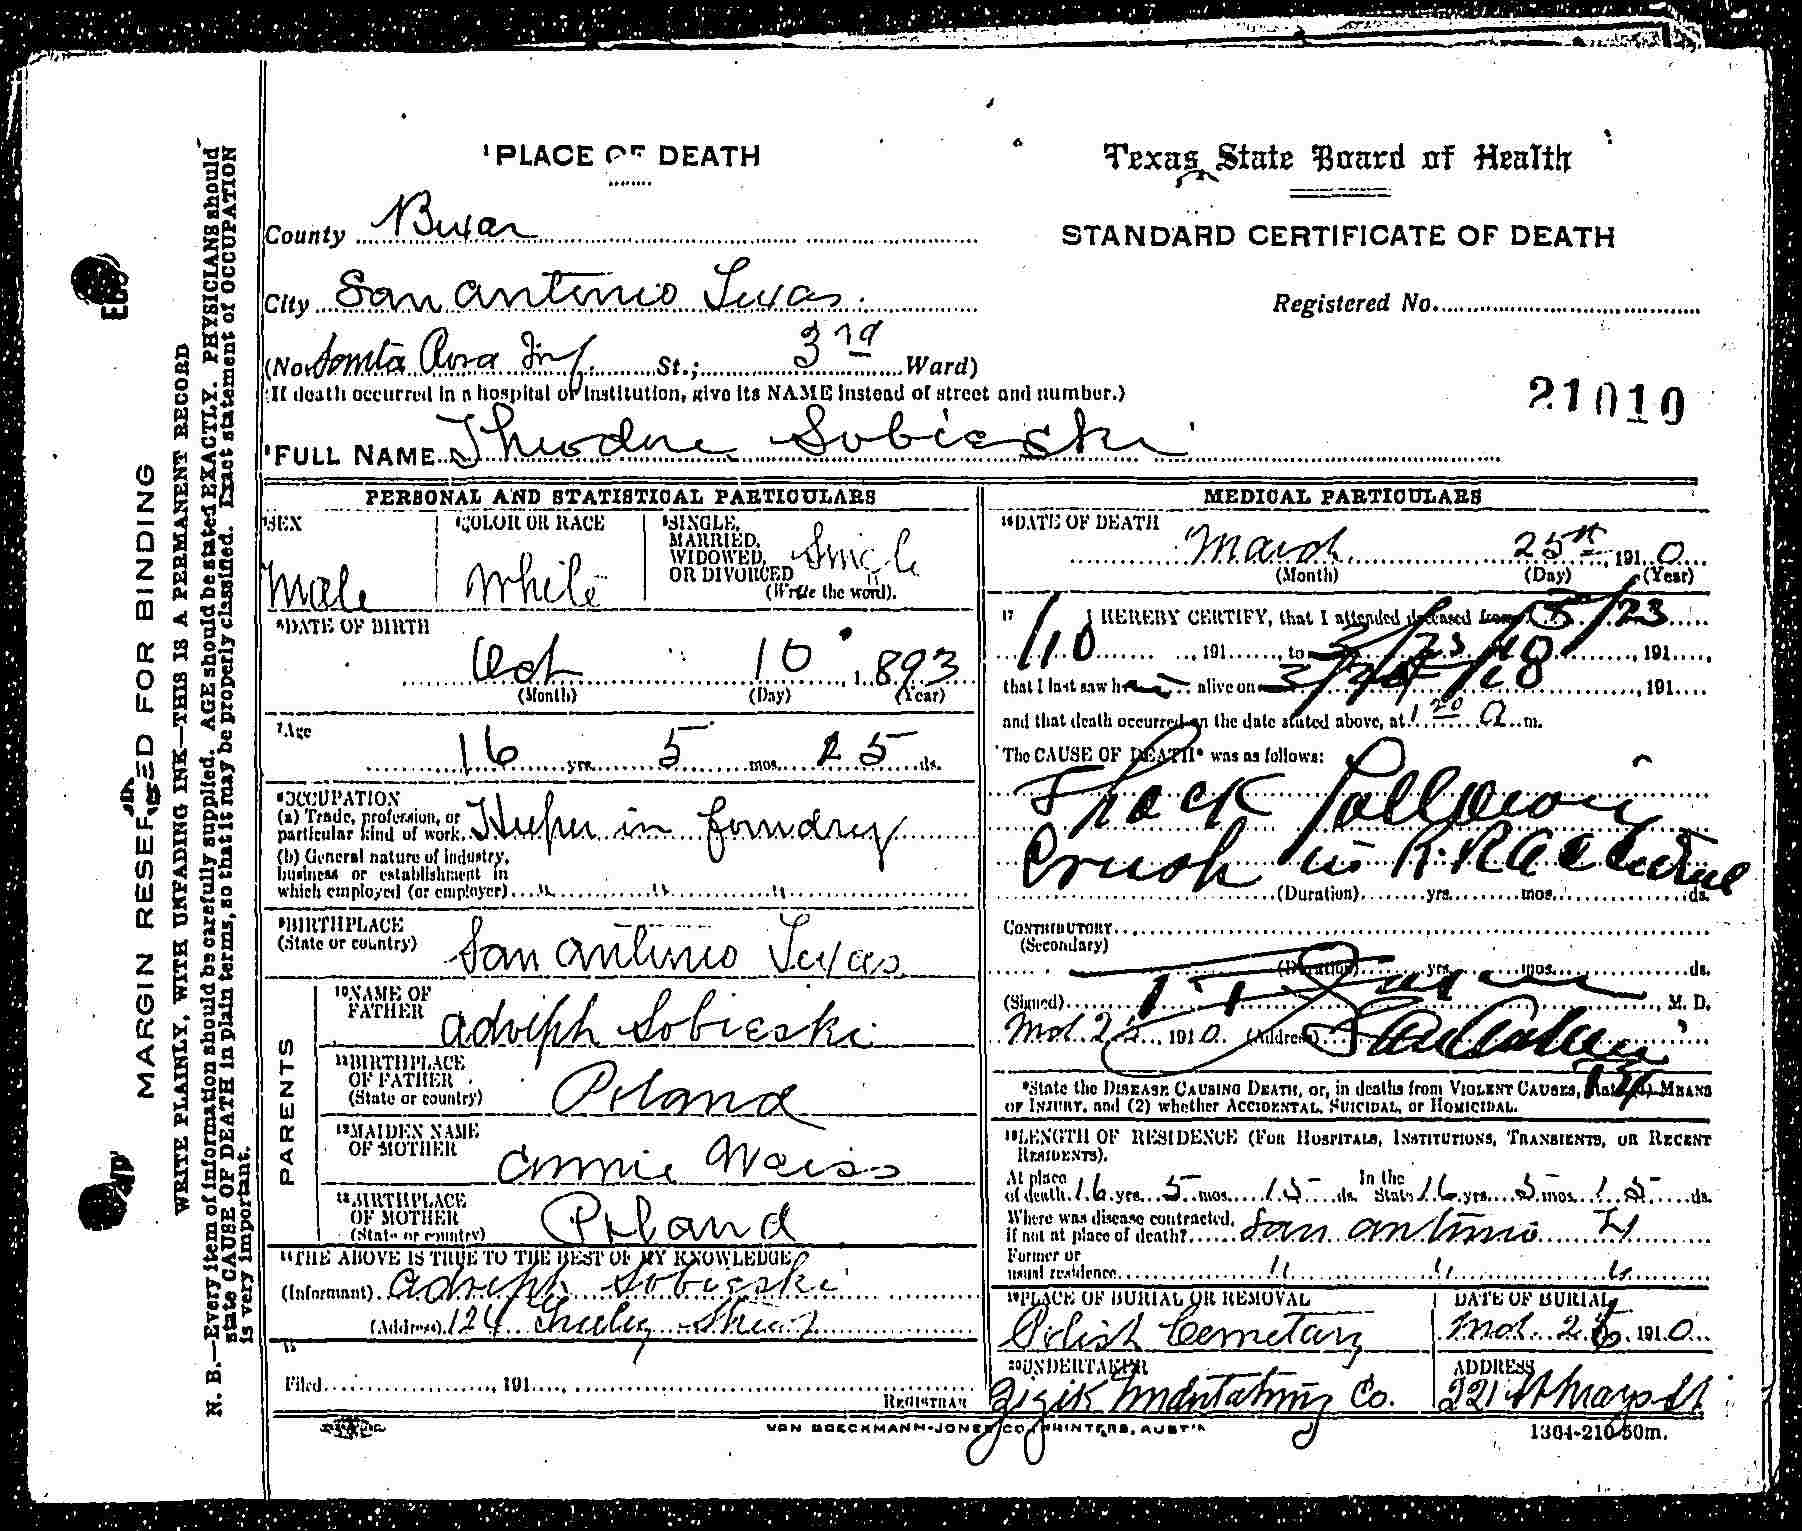 MARGIN RESERVED FOR BINDING
WRITE PLAINLY, WITH UNFADING INK—THIS IS A PERMANENT RECORD
N. B.—Every item of information should be carefully supplied. AGE should be stated EXACTLY. PHYSICIANS should
state CAUSE OF DEATH in plain terms, so that it may be properly classified. Exact statement of OCCUPATION
is very important.
1 PLACE OF DEATH
County Bexar
City San Antonio Texas.
(No. Santa Rosa Inf. St.; 3rd Ward)
(If death occurred in a hospital or institution, give its NAME instead of street and number.)
2 FULL NAME Theodore Sobieski
Texas State Board of Health
STANDARD CERTIFICATE OF DEATH
Registered No.
21010
PERSONAL AND STATISTICAL PARTICULARS
3 SEX
Male
4 COLOR OR RACE
White
5 SINGLE, MARRIED, WIDOWED, OR DIVORCED Single
(Write the word).
6 DATE OF BIRTH
Oct 10, 1893
(Month) (Day) (Year)
7 Age
16 yrs. 5 mos. 15 ds.
8 OCCUPATION
(a) Trade, profession, or
particular kind of work. Helper in foundry
(b) General nature of industry,
business or establishment in
which employed (or employer) " " "
9 BIRTHPLACE
(State or country) San Antonio Texas
PARENTS
10 NAME OF FATHER Adolph Sobieski
11 BIRTHPLACE OF FATHER
(State or country) Poland
12 MAIDEN NAME OF MOTHER Annie Weiss
13 BIRTHPLACE OF MOTHER
(State or country) Poland
14 THE ABOVE IS TRUE TO THE BEST OF MY KNOWLEDGE
(Informant) Adolph Sobieski
(Address) 124 Street
15
Filed, 191
REGISTRAR
MEDICAL PARTICULARS
16 DATE OF DEATH
March 25th, 1910
(Month) (Day) (Year)
17 I HEREBY CERTIFY, that I attended deceased from 3/23
/10, 191, to 3/25/10, 191,
that I last saw him alive on, 191
and that death occurred on the date stated above, at 1 20 a m.
The CAUSE OF DEATH* was as follows:
Shock following
Crush in R.R accident
(Duration) yrs. mos. ds.
CONTRIBUTORY
(Secondary)
(Duration) yrs. mos. ds.
(Signed), M. D.
Mch 25, 1910. (Address) San Antonio
Tex
*State the DISEASE CAUSING DEATH, or, in deaths from VIOLENT CAUSES, state (1) MEANS
OF INJURY, and (2) whether ACCIDENTAL, SUICIDAL, or HOMICIDAL.
18 LENGTH OF RESIDENCE (FOR HOSPITALS, INSTITUTIONS, TRANSIENTS, OR RECENT
RESIDENTS).
At place of death 16 yrs. 5 mos. 15 ds. In the State 16 yrs. 5 mos. 15 ds.
Where was disease contracted,
If not at place of death? San Antonio
Former or
usual residence " " "
19 PLACE OF BURIAL OR REMOVAL
Polish Cemetary
DATE OF BURIAL
Mch. 26, 1910
20 UNDERTAKER
Zizik Undertaking Co.
ADDRESS
221 St
VON BOECKMANN-JONES CO., PRINTERS, AUSTIN
1364-210-50m.